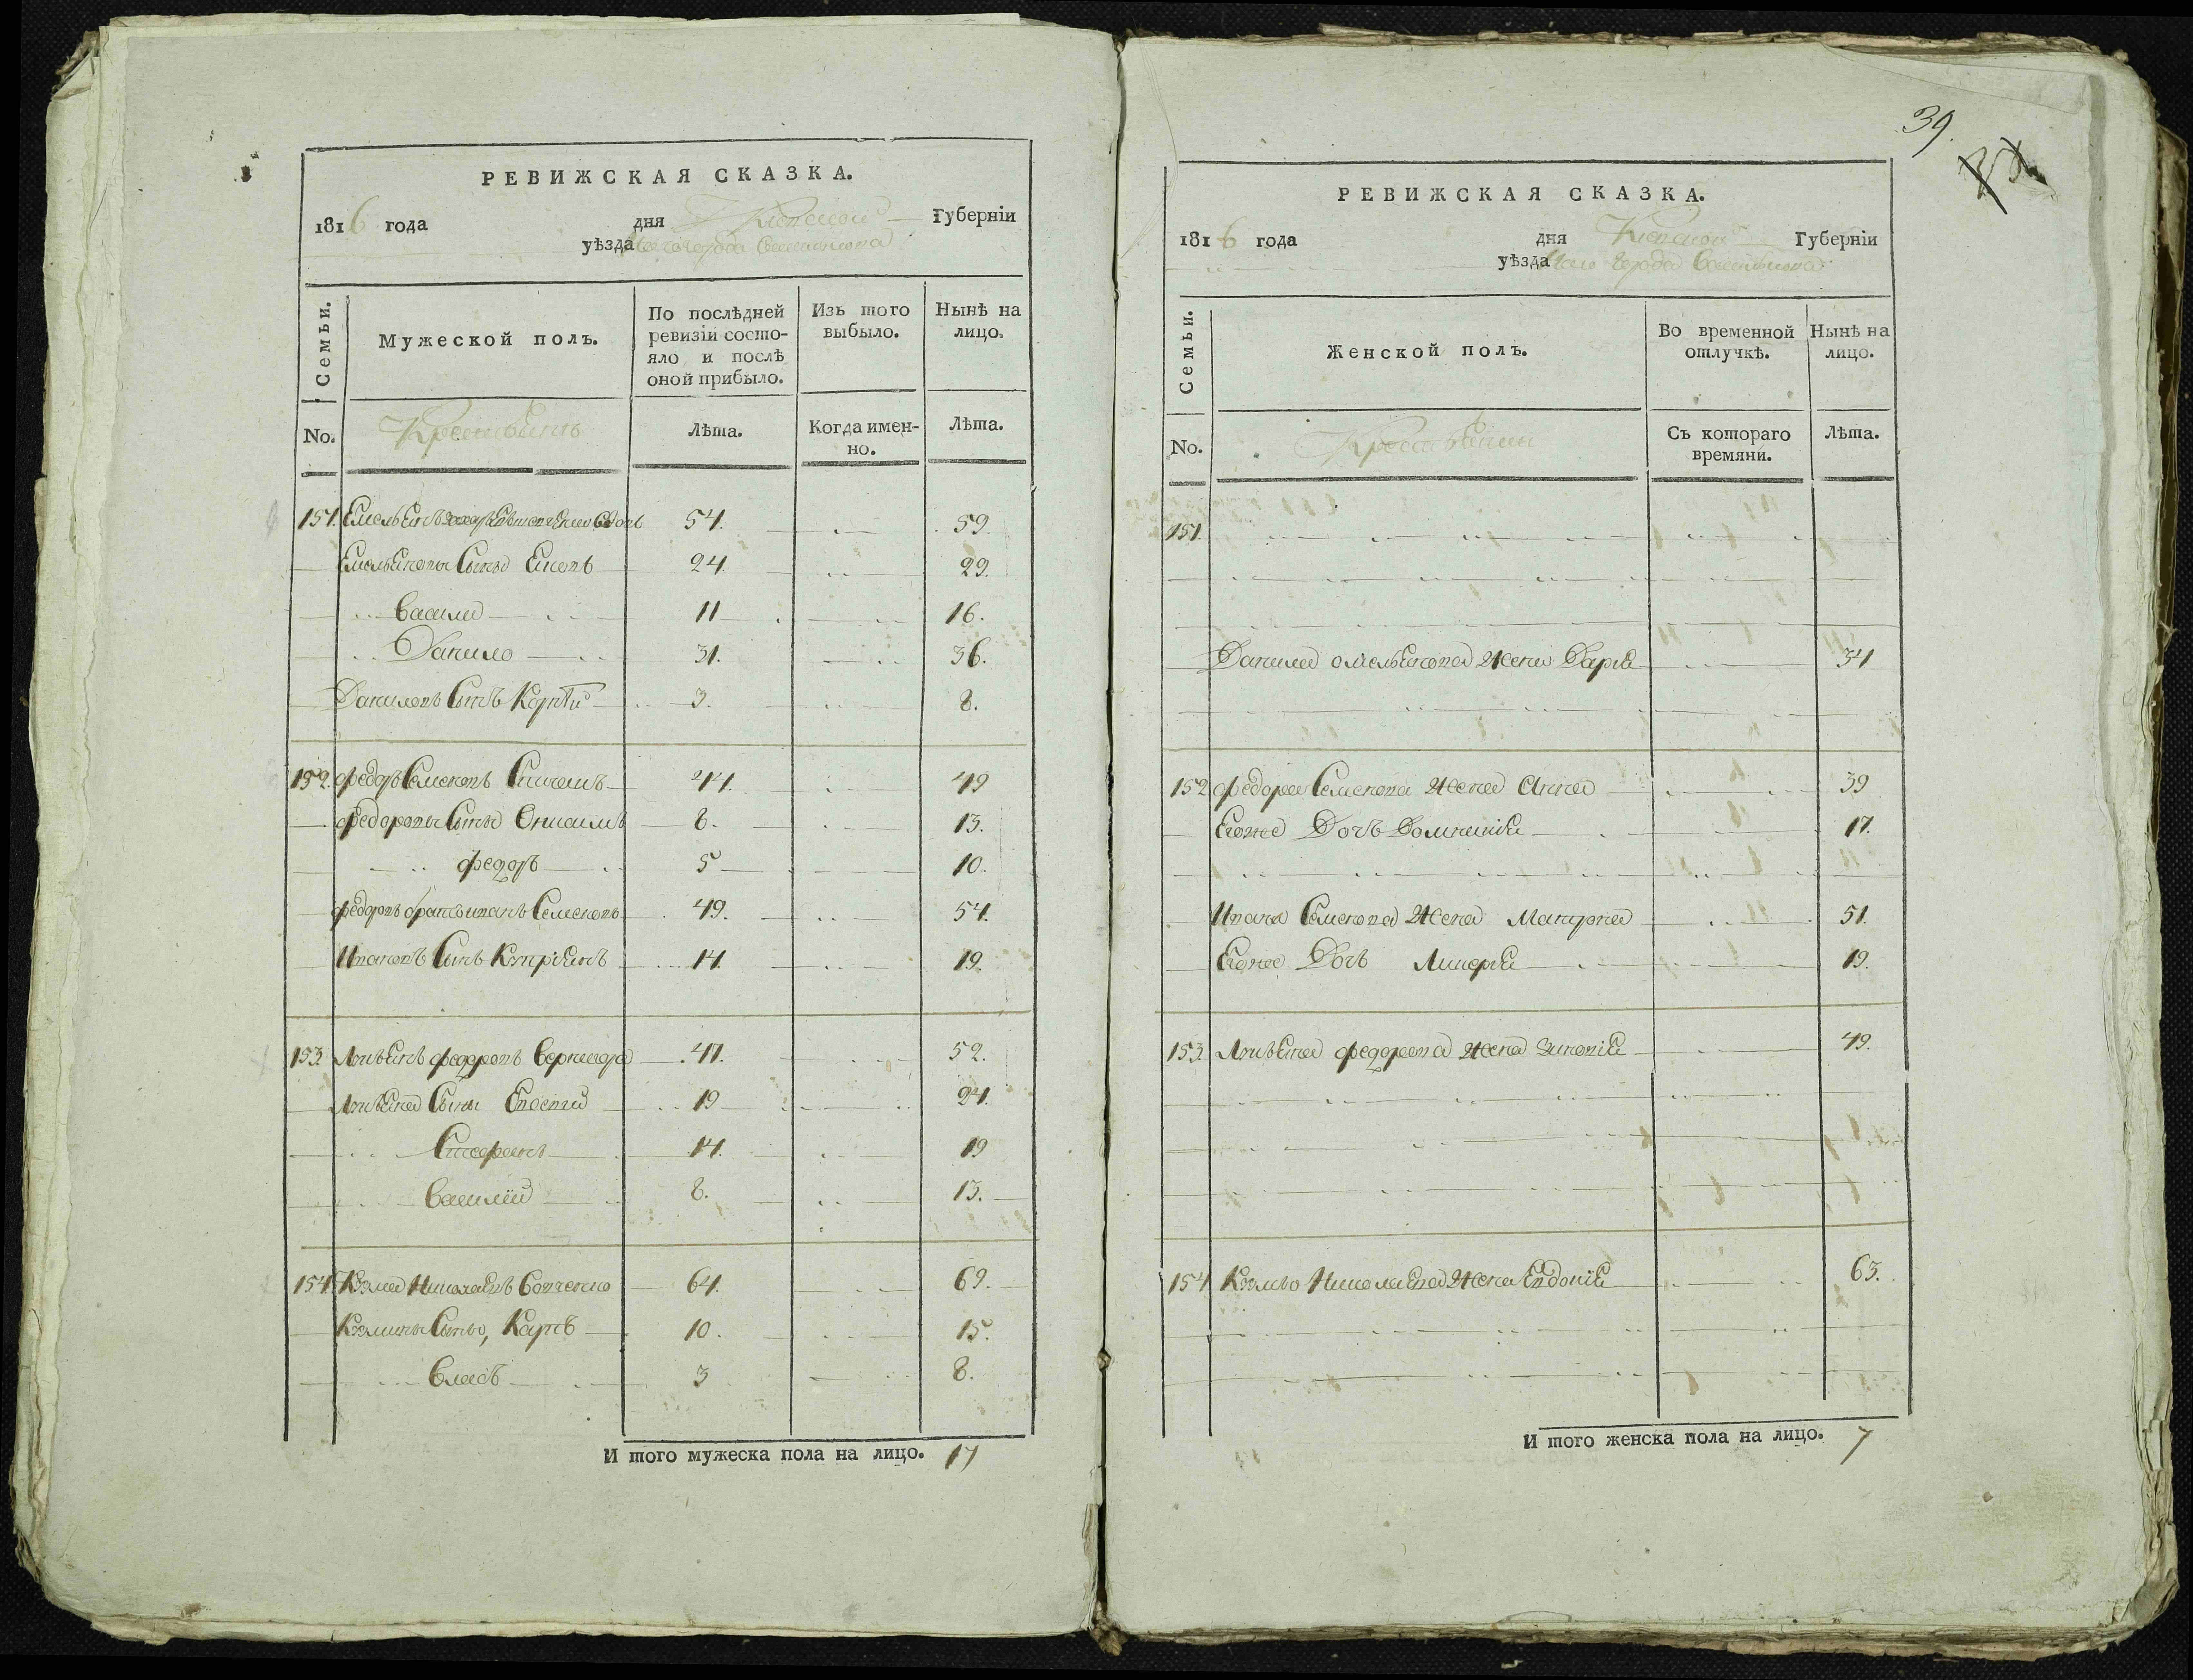 РЕВИЖСКАЯ СКАЗКА.
1816 года дня Киевской Губерніи
уѣзда города
Семьи.
Мужеской полъ.
По послѣдней ревизіи состояло и послѣ оной прибыло.
Изъ того выбыло.
Нынѣ на лицо.
No.
Крестьянъ
Лѣта.
Когда именно.
Лѣта.
151. 54. 59.
Емельяновы Сыны 24. 29.
Василй 11 16.
Данило 31. 36.
Даниловъ Сынъ Карпъ 3. 8.
152. Федоръ Семеновъ 44. 49
Федоровы Сыны Онисимъ 8. 13.
Федоръ 5 10.
Федоровъ братъ Иванъ Семеновъ 49. 54.
Ивановъ Сынъ Кипріянъ 14. 19.
153. Лукьянъ Федоровъ 47. 52.
Лукьяна Сыны 19 24.
14. 19
Василій 8. 13.
154. Козма Николаевъ 64. 69.
Козмины Сыны, Карпъ 10. 15.
Власъ 3 8.
И того мужеска пола на лицо. 17
39.
РЕВИЖСКАЯ СКАЗКА.
1816 года дня Киевской Губерніи
уѣзда города
Семьи.
Женской полъ.
Во временной отлучкѣ.
Нынѣ на лицо.
No.
Крестьянъ
Съ котораго времяни.
Лѣта.
151.
Данила Омельянова Жена Дарія 34
152 Федора Семенова Жена Анна 39
Егоже Дочь Домникія 17.
Ивана Семенова Жена 51.
Егоже Дочь 19.
153. Лукьяна Федорова Жена Зиновія 49.
154 Козмы Николаева Жена Евдокія 63.
И того женска пола на лицо. 7